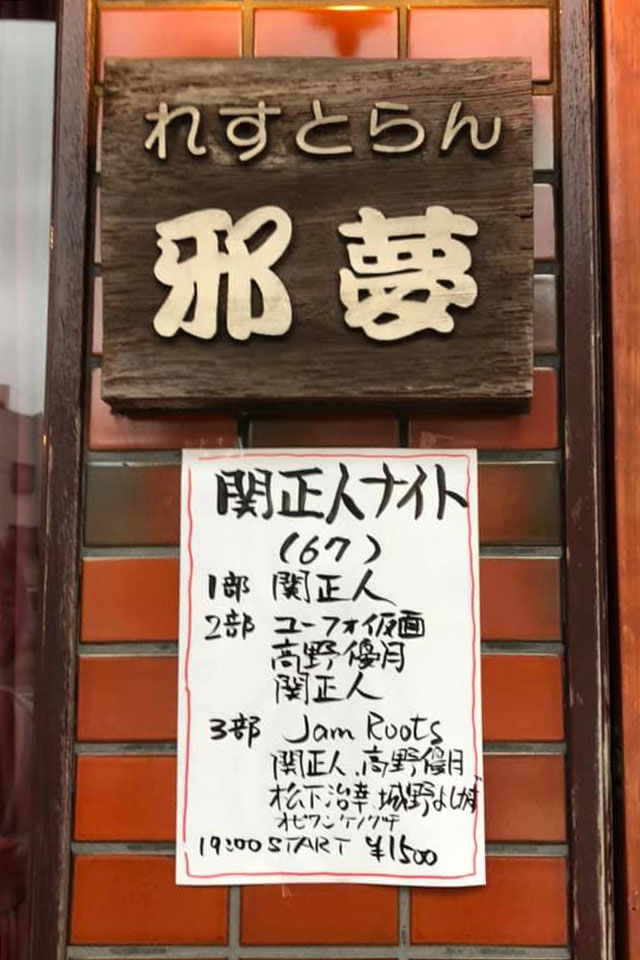 れすとらん
邪夢
関正人ナイト
(67)
1部 関正人
2部 ユーフォ仮面
高野優月
関正人
3部 Jam Roots
関正人、高野優月
松下治幸 城野よしかず
オビワンケノグチ
19:00 START ¥1500